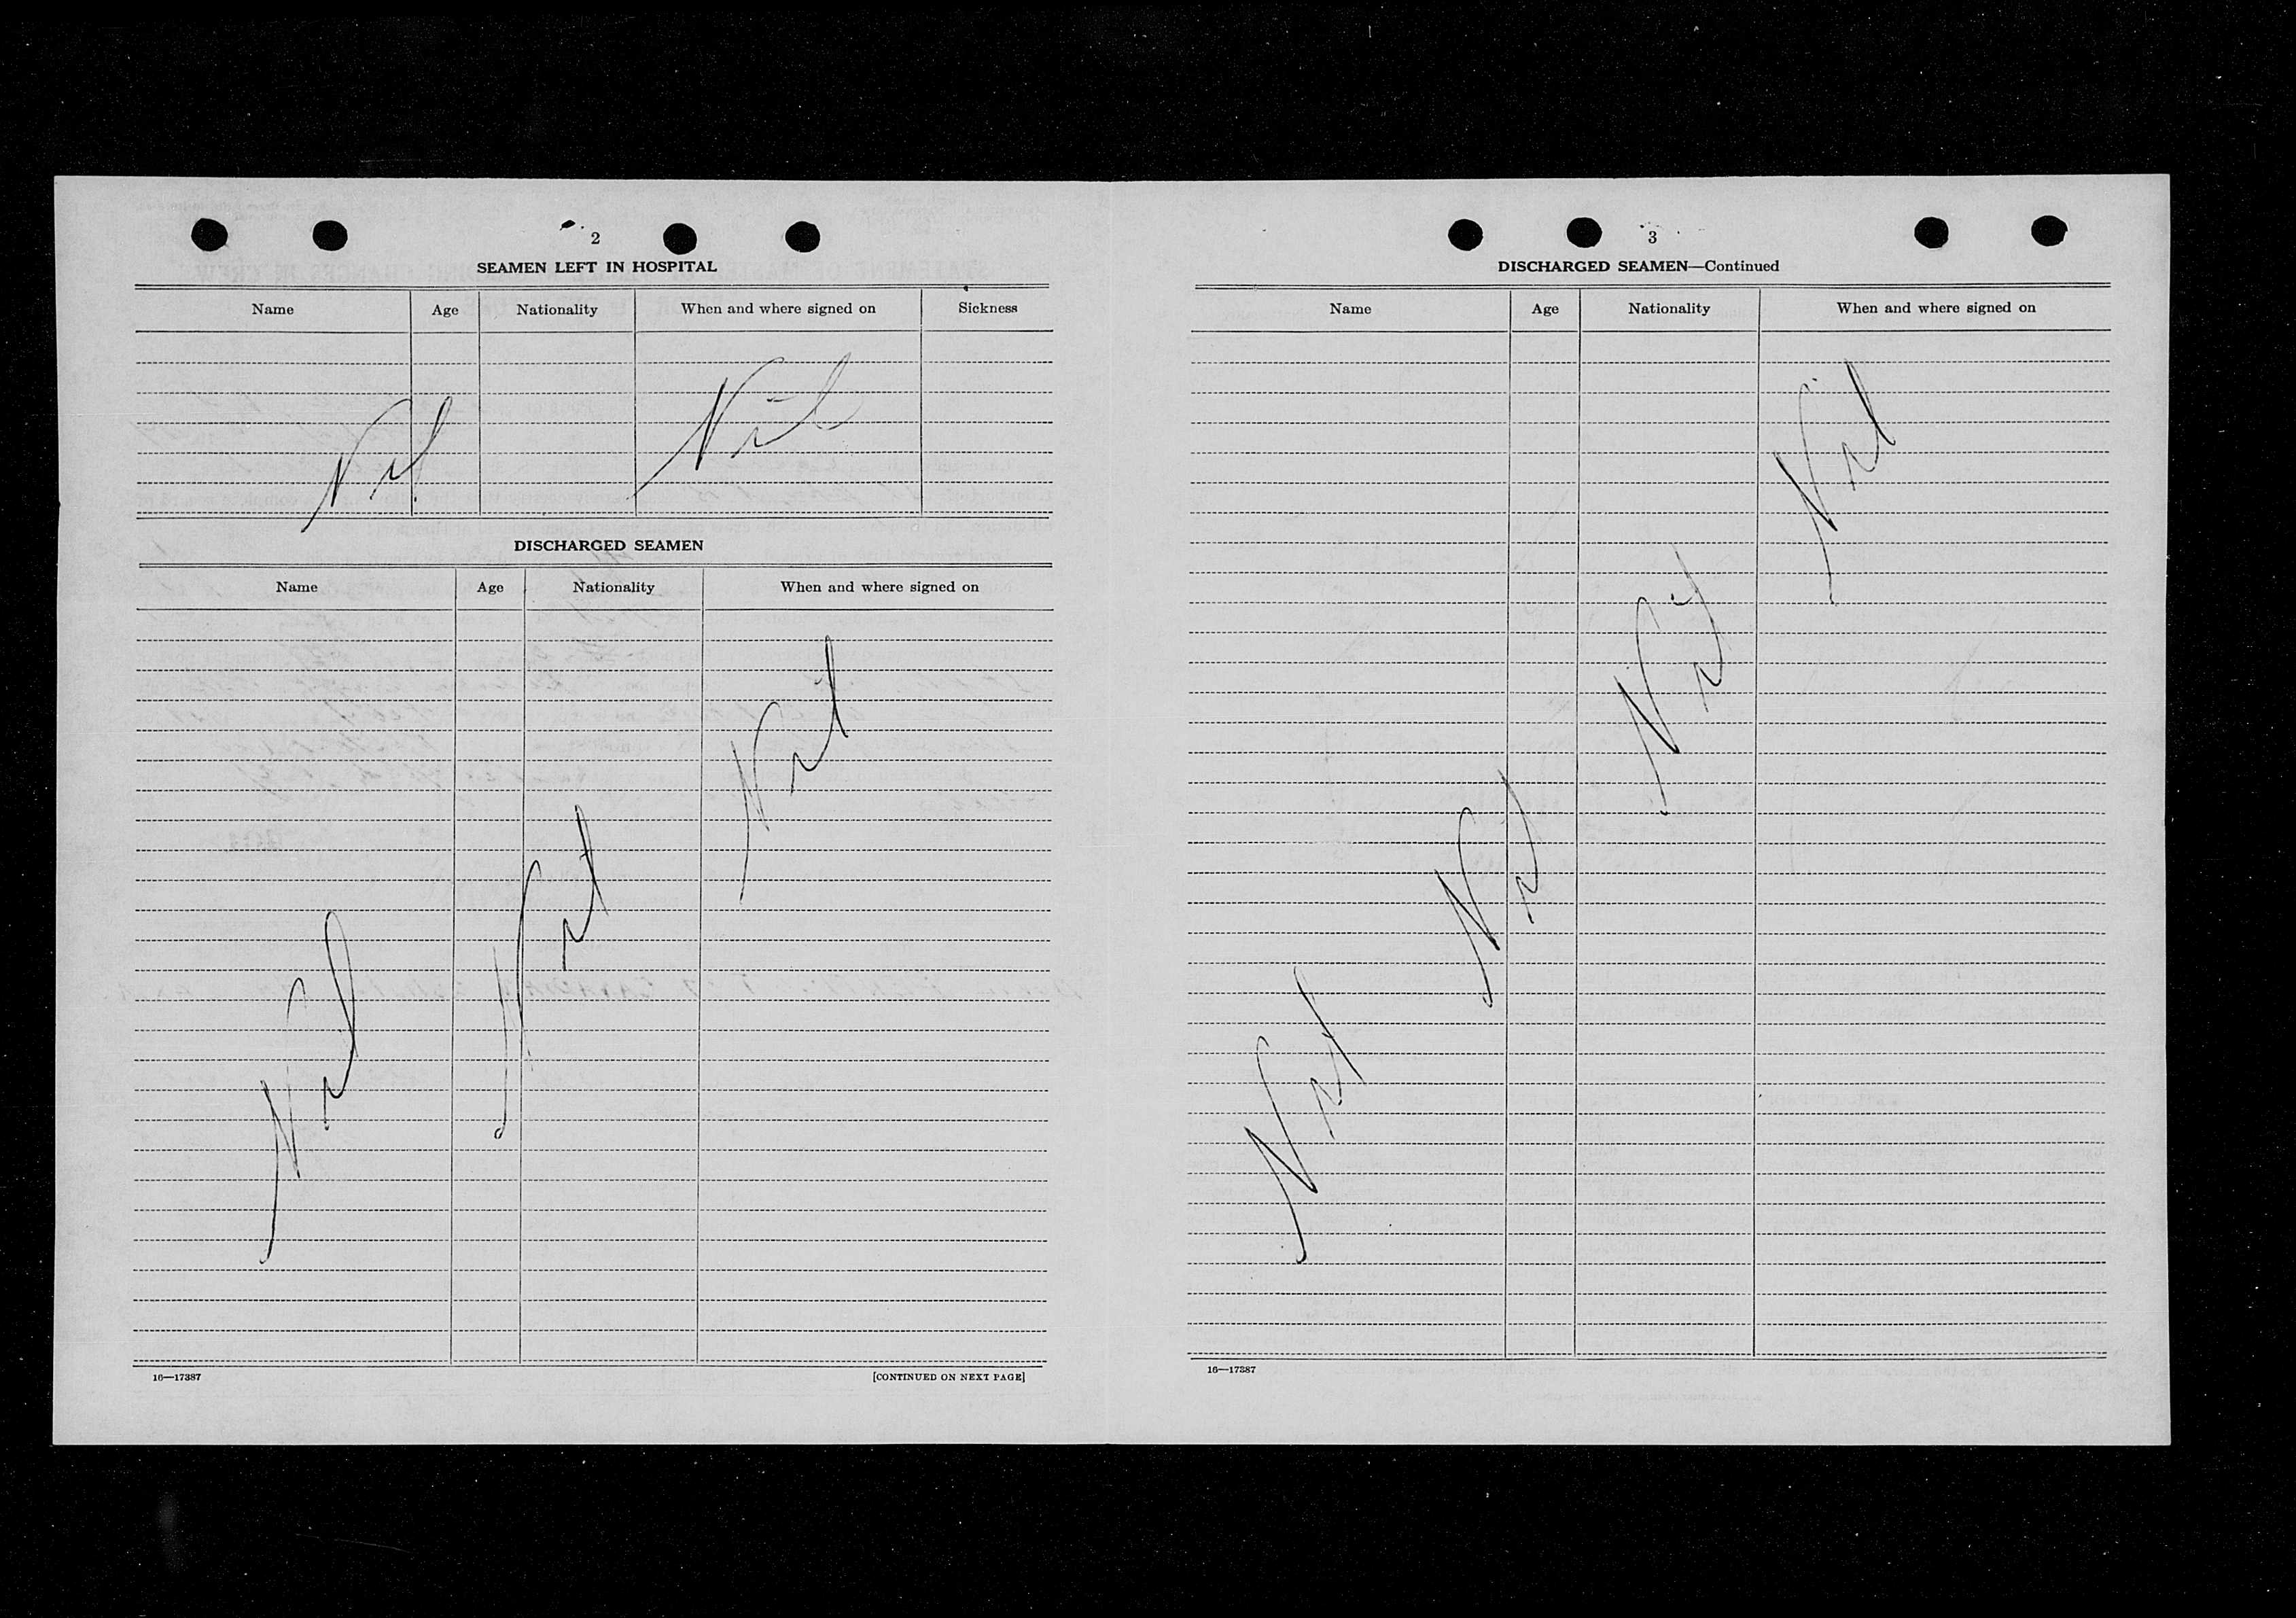 2
SEAMEN LEFT IN HOSPITAL
Name Age Nationality When and where signed on Sickness
Nil Nil
DISCHARGED SEAMEN
Name Age Nationality When and where signed on
Nil
Nil
Nil
16—17387 [CONTINUED ON NEXT PAGE]
3
DISCHARGED SEAMEN—Continued
Name Age Nationality When and where signed on
Nil
Nil
Nil
Nil
16—17387